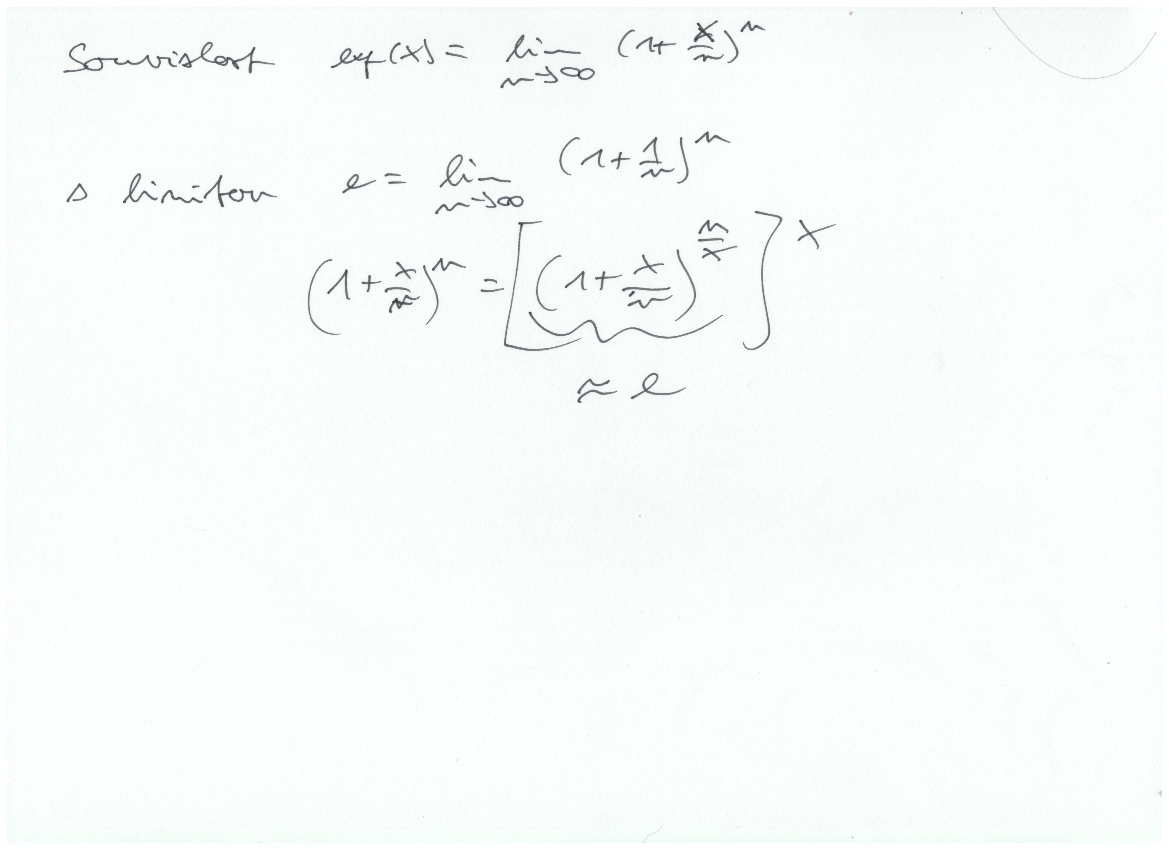 Souvislost exp(x) = lim n→∞ (1 + x/n)^n
s limitou e = lim n→∞ (1 + 1/n)^n
(1 + x/n)^n = [(1 + x/n)^(n/x)]^x
≈ e